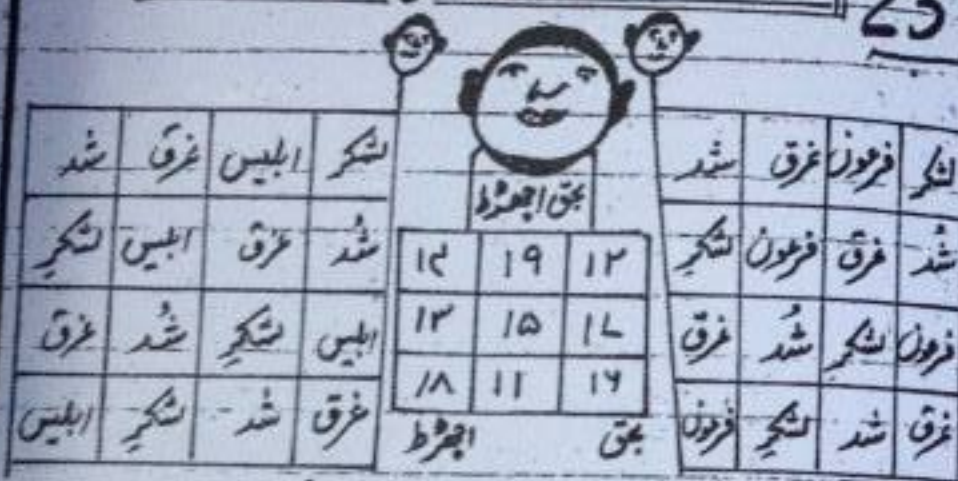 لشکر فرعون غرق شد
شُد غرق فرعون لشکر
فرعون لشکر شُد غرق
غرق شد لشکر فرعون
بحق اجھزط
۱۲ ۱۹ ۱۴
۱۷ ۱۵ ۱۳
۱۶ ۱۱ ۱۸
بحق اجھزط
لشکر ابلیس غرق شد
شُد غرق ابلیس لشکر
ابلیس لشکر شُد غرق
غرق شد لشکر ابلیس